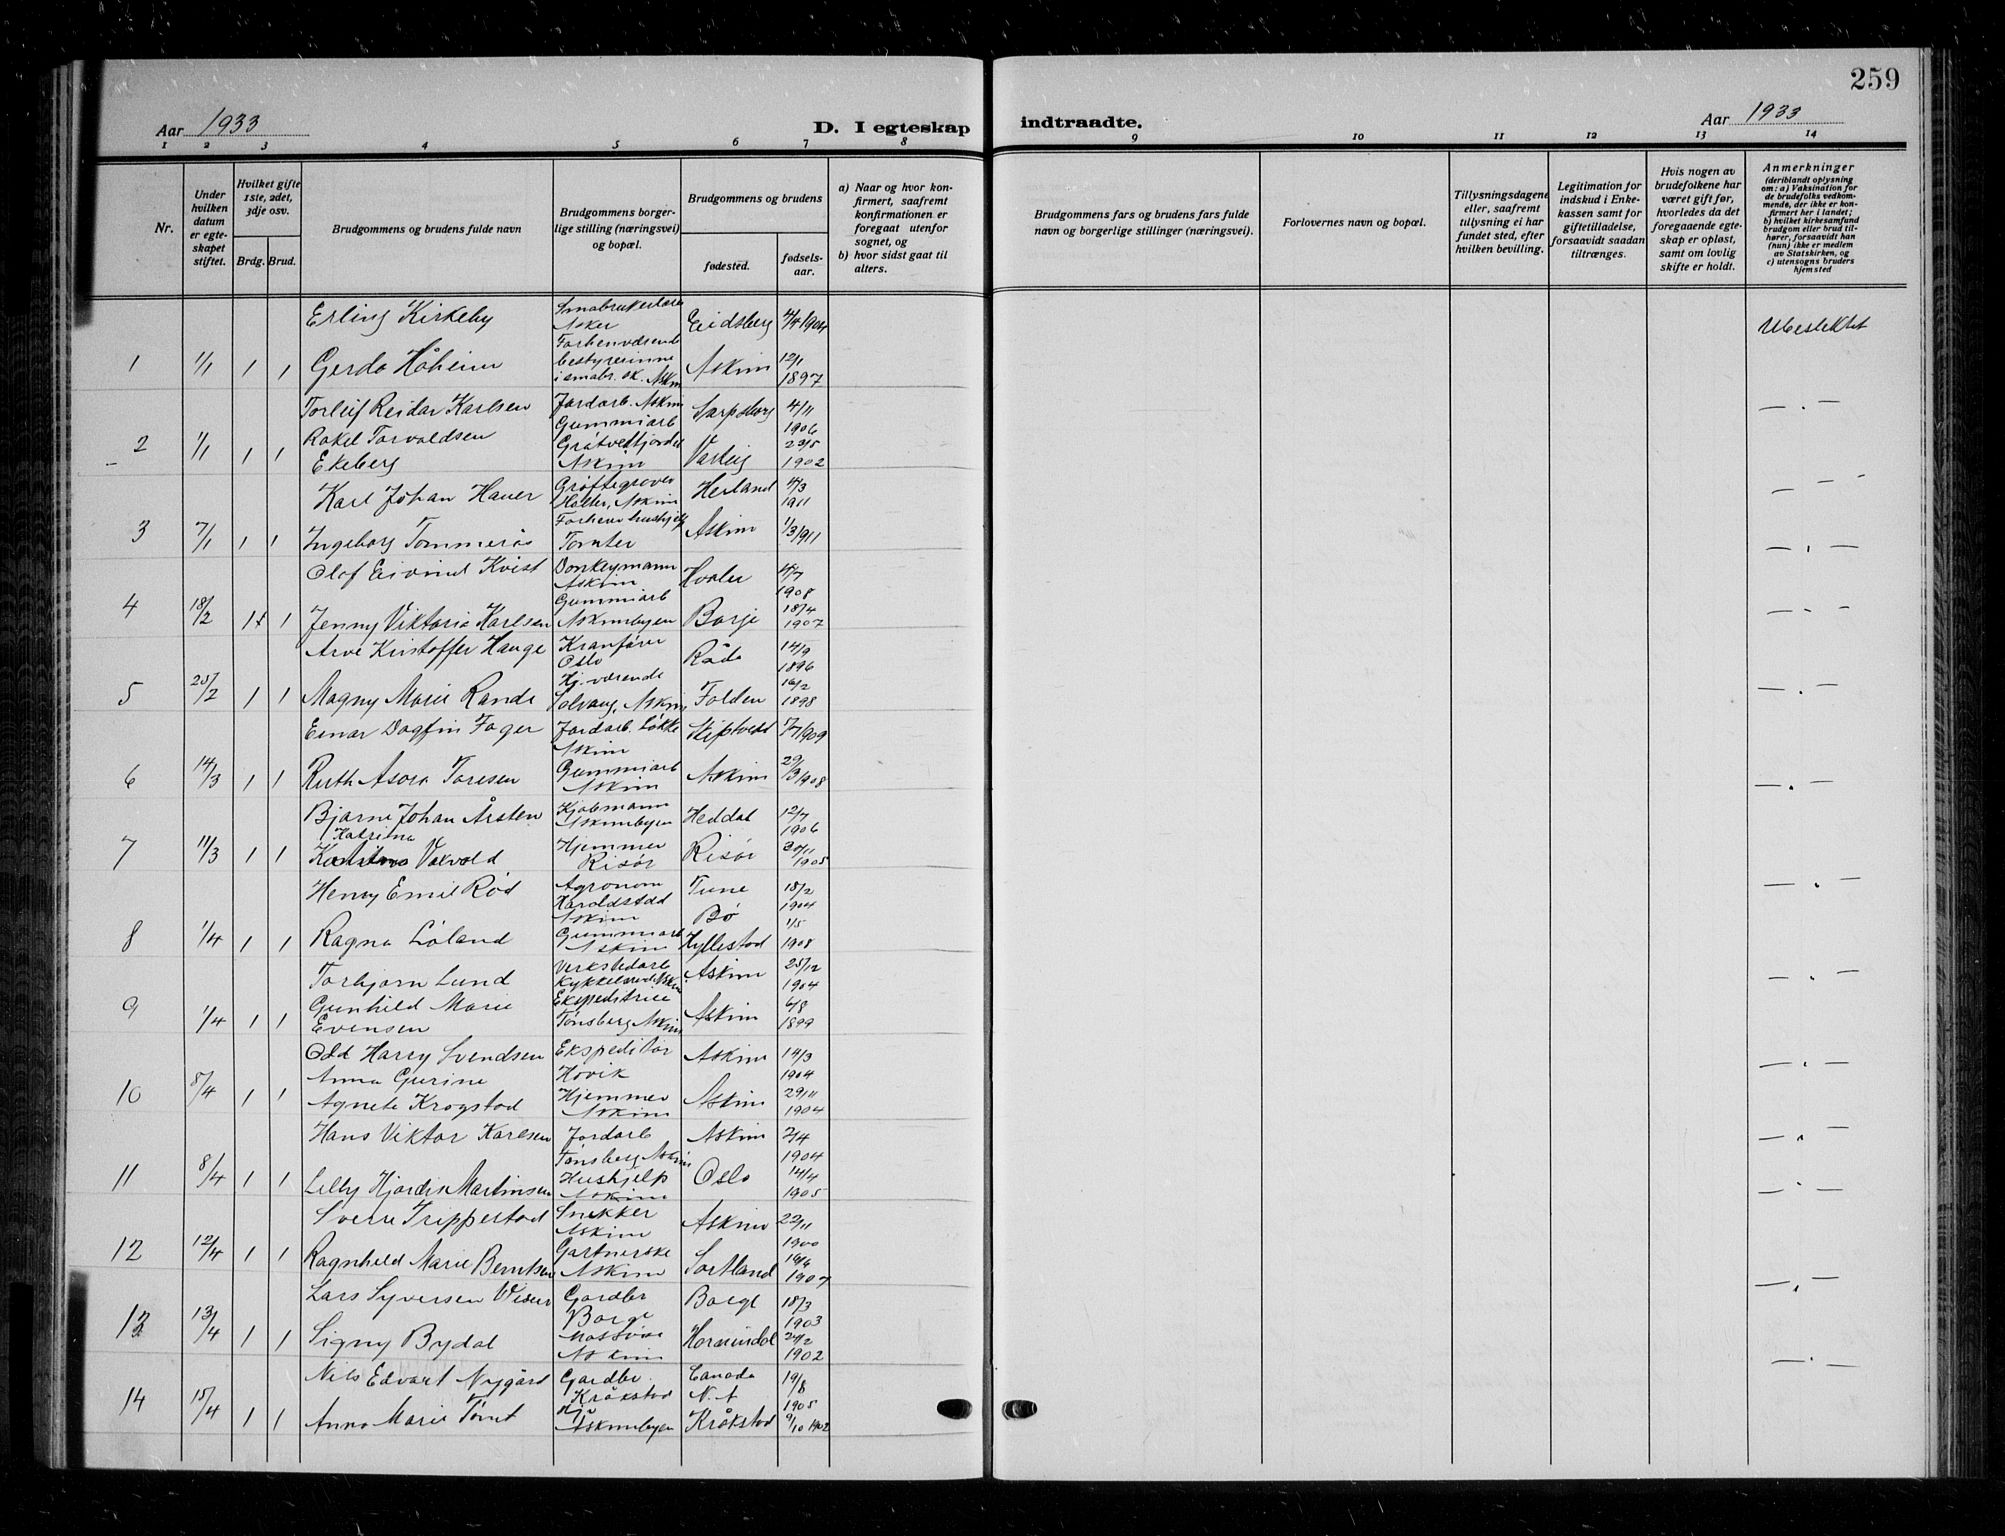 259
Aar 1933
D. I egteskap
indtraadte.
Aar 1933
1 2 3 4 5 6 7 8 9 10 11 12 13 14
Nr.
Under hvilken datum er egteskapet stiftet.
Hvilket gifte 1ste, 2det, 3dje osv.
Brdg. Brud.
Brudgommens og brudens fulde navn
Brudgommens borgerlige stilling (næringsvei) og bopæl.
Brudgommens og brudens
fødested.
fødselsaar.
a) Naar og hvor konfirmert, saafremt konfirmationen er foregaat utenfor sognet, og
b) hvor sidst gaat til alters.
Brudgommens fars og brudens fars fulde navn og borgerlige stillinger (næringsvei).
Forlovernes navn og bopæl.
Tillysningsdagene eller, saafremt tillysning ei har fundet sted, efter hvilken bevilling.
Legitimation for indskud i Enkekassen samt for giftetilladelse, forsaavidt saadan tiltrænges.
Hvis nogen av brudefolkene har været gift før, hvorledes da det foregaaende egteskap er opløst, samt om lovlig skifte er holdt.
Anmerkninger
(deriblandt oplysning om: a) Vaksination for de brudefolks vedkommende, der ikke er konfirmert her i landet; b) hvilket kirkesamfund brudgom eller brud tilhører, forsaavidt han (hun) ikke er medlem av Statskirken, og c) utensogns bruders hjemsted
Erling Kirkeby Smabrukerlærer Asker Eidsberg 4/4 1904 Ubeslektet
1 1/1 1 1 Gerda Håheim Forhenværende bestyrerinne i smabr. sk. Askim Askim 12/1 1897
Torleif Reidar Karlsen Jordarb. Askim Sarpsborg 4/11 1906 — . —
2 1/1 1 1 Rakel Torvaldsen Ekeberg Gummiarb Askim Varteig 23/5 1902
Karl Johan Hauer Grøftegraver Holter, Askim Herland 4/3 1911 — - -
3 7/1 1 1 Ingeborg Tommerås Tomter Askim 1/3 1911
Olof Eivind Kvist Donkeymann Askim Hvaler 4/7 1908 — . —
4 18/2 1 1 Jenny Viktoria Karlsen Gummiarb Askimbyen Borje 18/4 1907 — . —
Arve Kristoffer Hauge Kranfører Oslo Råde 14/9 1896
5 25/2 1 1 Magny Marie Rande Hj. værende Solvang, Askim Folden 16/2 1898 — . —
Einar Dagfin Fager Jordarb. Løkke Askim Skiptvedt 17/7 1909
6 14/3 1 1 Ruth Asora Toresen Gummiarb Askim Askim 29/3 1908 — . —
Bjarne Johan Årsten Askimbyen Heddal 12/7 1906
Katrina
7 11/3 1 1 Vakvold Hjemmev Risør Risør 30/11 1905
Henry Emil Rød Agronom Haroldstad Askim Tune 18/2 1904 — . —
8 1/4 1 1 Ragna Løland Gummiarb Askim Bø Hyllestad 1/5 1908
Torbjørn Lund Verkstedarb Kykkelsrud Askim Askim 25/12 1904 — . —
9 1/4 1 1 Gunhild Marie Evensen Ekspeditrice Tønsberg Askim Askim 6/8 1899
Odd Harry Svendsen Ekspeditør Høvik Askim 14/3 1904 — . —
10 8/4 1 1 Anna Gurine Agnete Krogstad Hjemmev Askim Askim 29/11 1904
Hans Viktor Karlsen Jordarb Tønsberg Askim Askim 2/4 1904 — . —
11 8/4 1 1 Lilly Hjordis Martinsen Hushjelp Askim Oslo 14/4 1905 — . —
Sverre Trippestad Snekker Askim Askim 22/11 1900
12 12/4 1 1 Ragnhild Marie Berntsen Gartnerske Askim Sortland 16/6 1907
Lars Syversen Gardbr Borge Borge 18/3 1903 — . —
13 13/4 1 1 Signy Bydal Massøse Askim Hornindal 24/2 1902
Nils Edvart Nygård Gardbr. Kråkstad Canada N. A 19/8 1905 — . —
14 15/4 1 1 Anna Marie Tomt Hj Askimbyen Kråkstad 9/10 1902